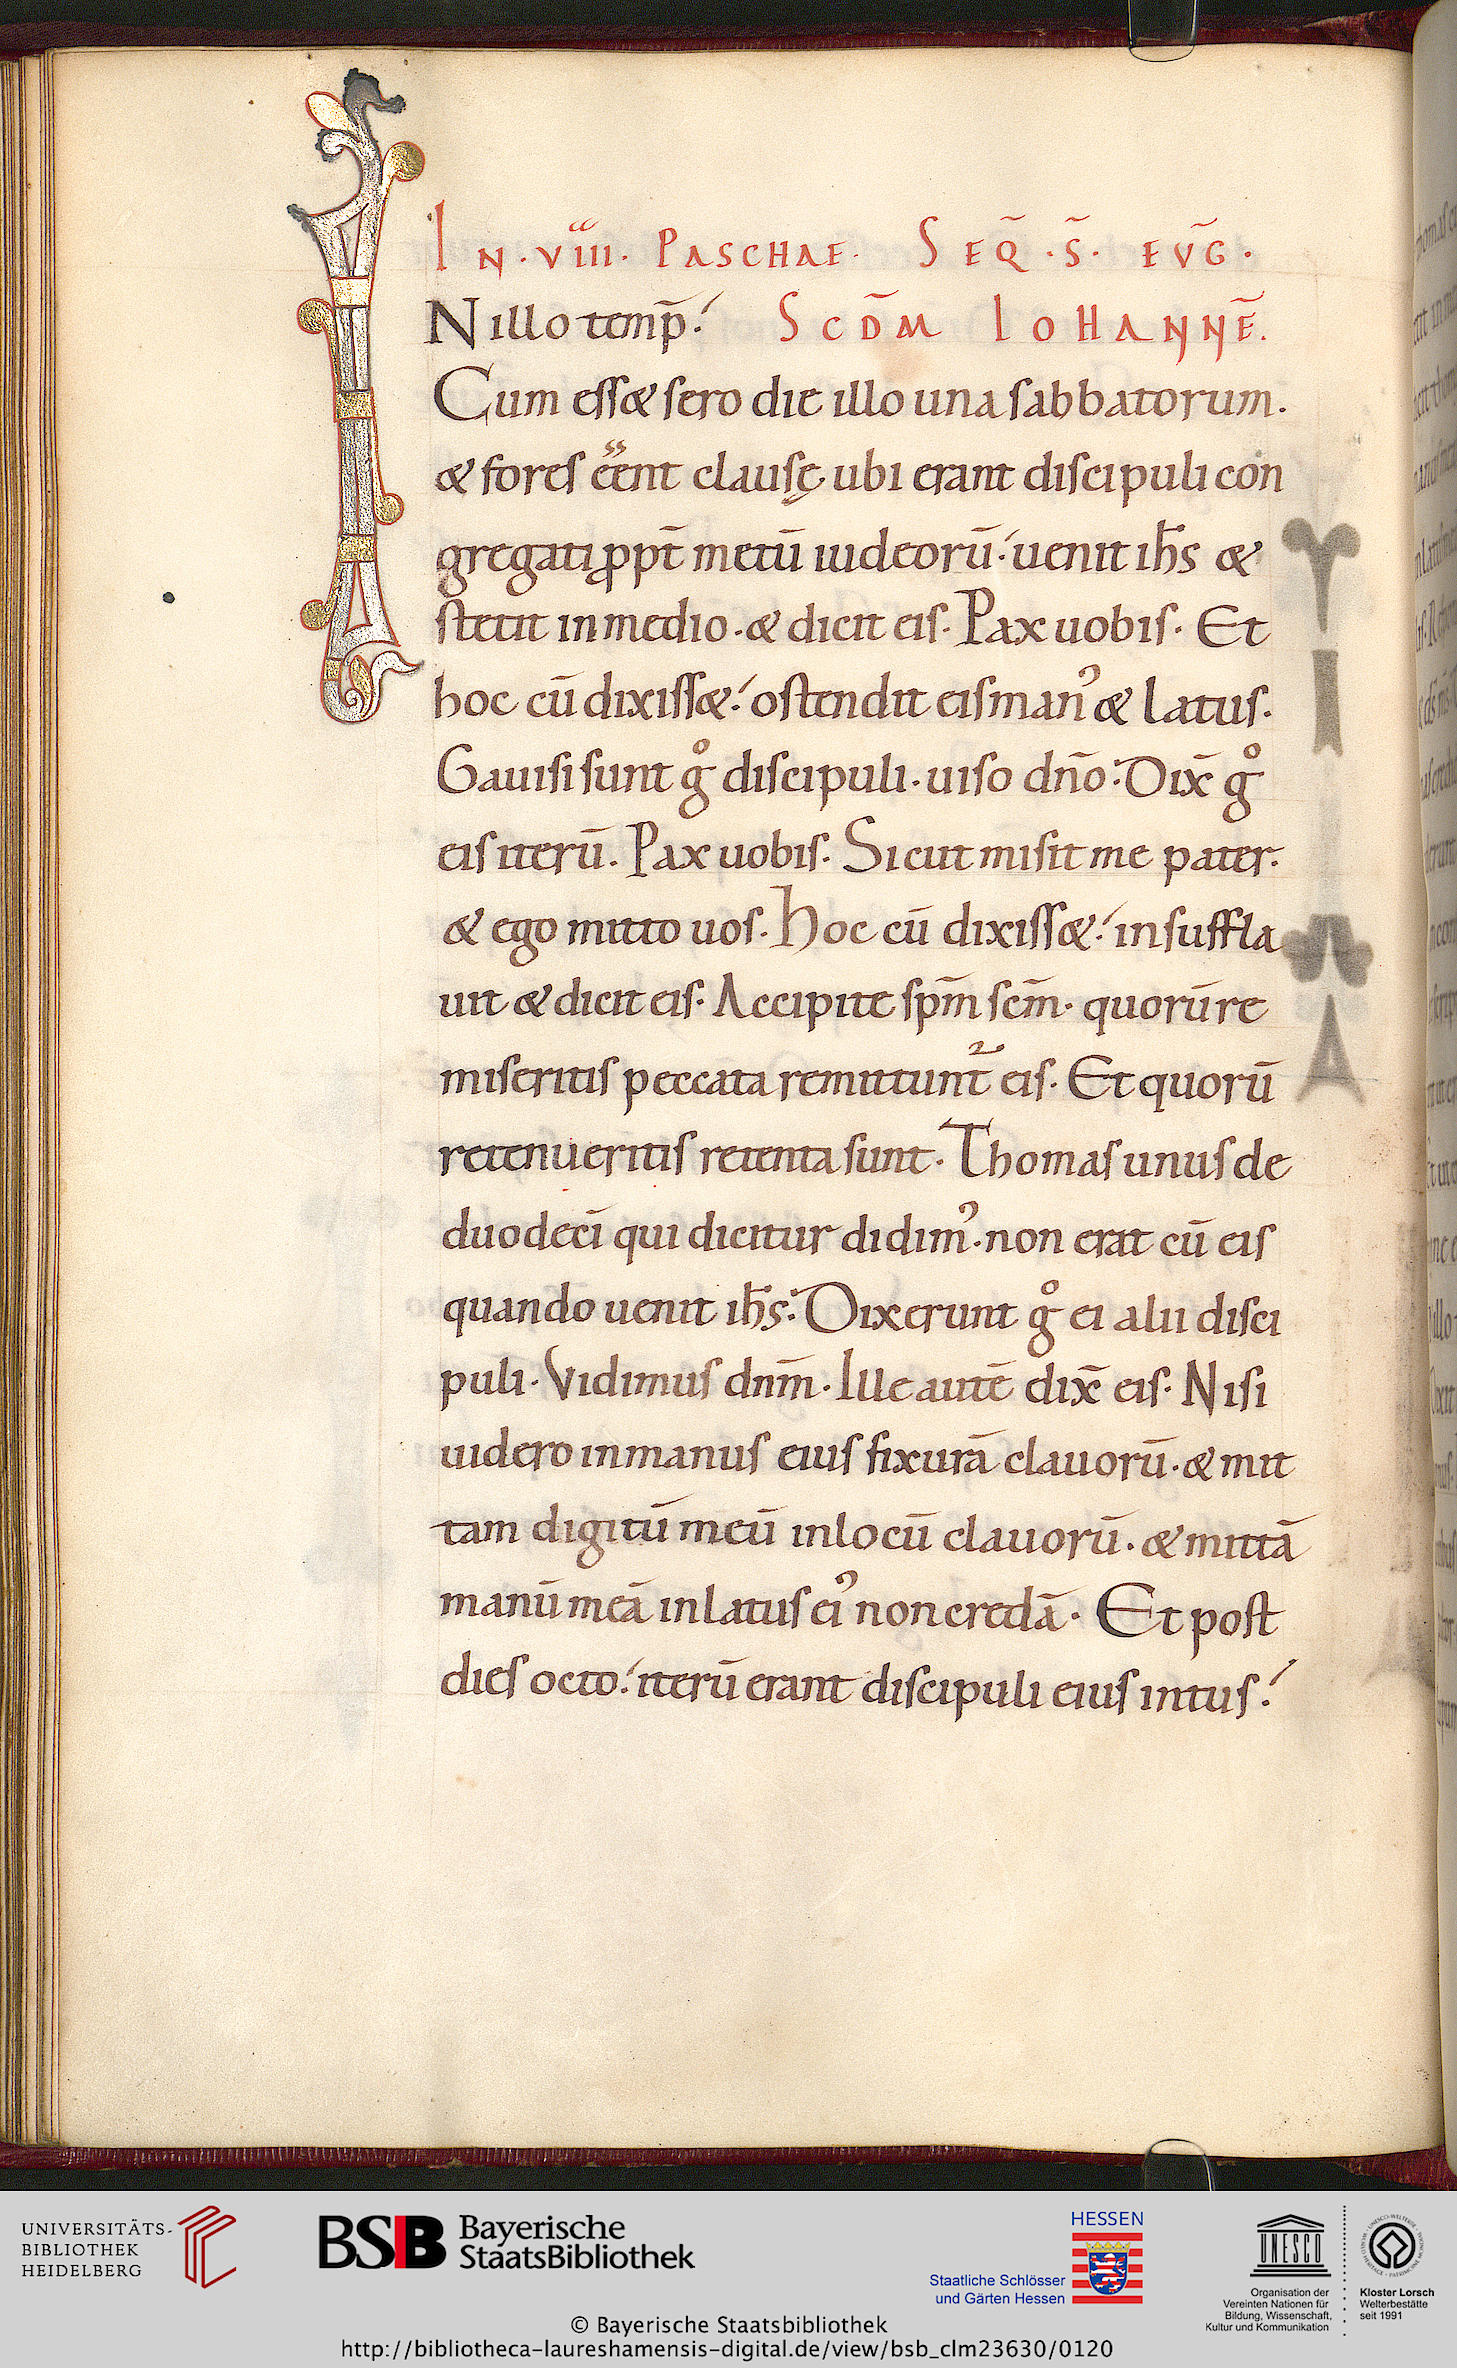 IN · VIII · PASCHAE · SEQ̃ · S̃ · EVG̃ ·
N illo temp̄. SCD̄M IOHANNĒ.
Cum esset sero die illo una sabbatorum.
& fores ēent clausę ubi erant discipuli con
gregati ꝓpt̄ metū iudeorū. uenit ih̄s &
stetit in medio. & dicit eis. Pax uobis. Et
hoc cū dixiss&. ostendit eis man᾽ & latus.
Gauisi sunt gͦ discipuli. uiso dn̄o. Dix̄ gͦ
eis iterū. Pax uobis. Sicut misit me pater.
& ego mitto uos. Hoc cū dixiss&. insuffla
uit & dicit eis. Accipite sp̄m sc̄m. quorū re
miseritis peccata remittunt̄ eis. Et quorū
retenueritis retenta sunt. Thomas unus de
duodecī qui dicitur didim᾽. non erat cū eis
quando uenit ih̄s. Dixerunt gͦ ei alii disci
puli. Vidimus dn̄m. Ille autē dix̄ eis. Nisi
uidero in manus eius fixurā clauorū. & mit
tam digitū meū in locū clauorū. & mittā
manū meā in latus ei᾽ non credā. Et post
dies octo. iterū erant discipuli eius intus.
UNIVERSITÄTS-
BIBLIOTHEK
HEIDELBERG
BSB Bayerische
StaatsBibliothek
HESSEN
Staatliche Schlösser
und Gärten Hessen
UNESCO
Organisation der
Vereinten Nationen für
Bildung, Wissenschaft,
Kultur und Kommunikation
Kloster Lorsch
Welterbestätte
seit 1991
© Bayerische Staatsbibliothek
http://bibliotheca-laureshamensis-digital.de/view/bsb_clm23630/0120